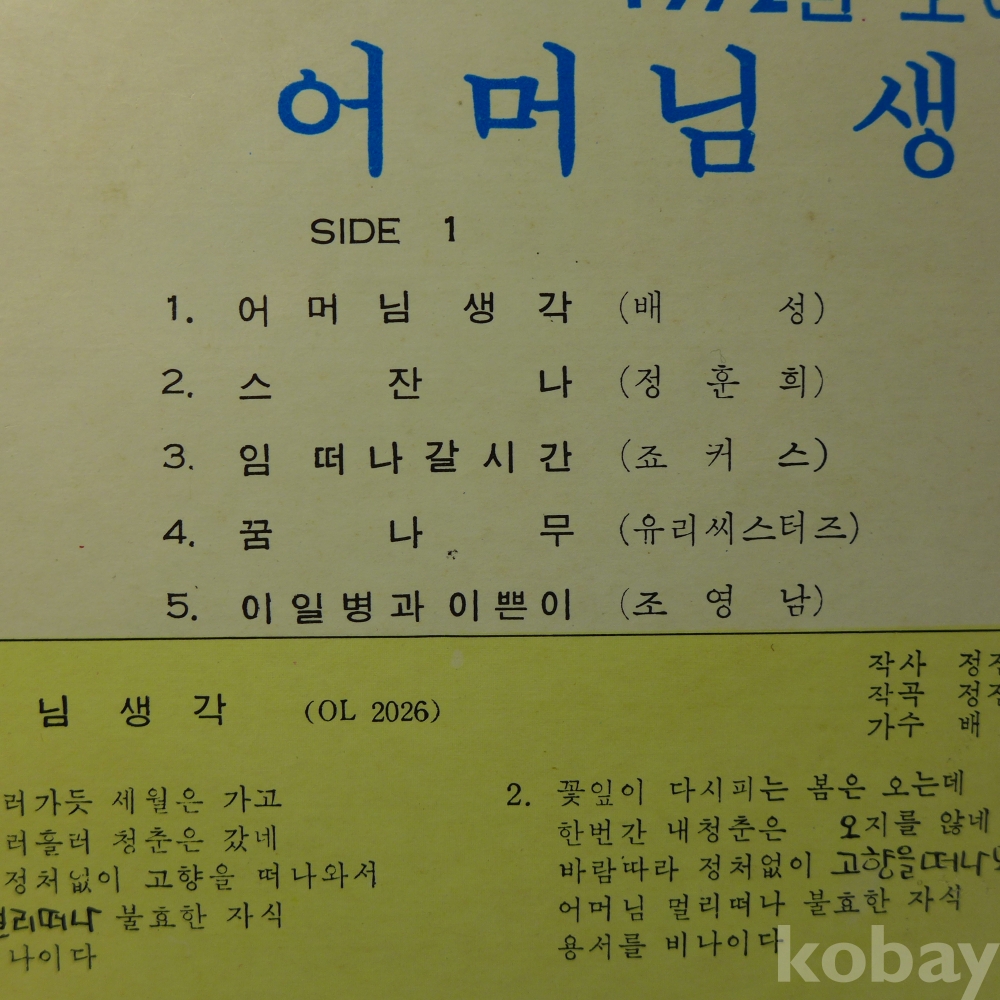 1972년
어머님생
SIDE 1
1. 어머님 생각 (배 성)
2. 스 잔 나 (정 훈 희)
3. 임 떠나갈시간 (죠 커 스)
4. 꿈 나 무 (유리씨스터즈)
5. 이일병과 이쁜이 (조 영 남)
님 생 각 (OL 2026)
작사 정진
작곡 정진
가수 배
러가듯 세월은 가고
러흘러 청춘은 갔네
정처없이 고향을 떠나와서
멀리떠나 불효한 자식
나이다
2. 꽃잎이 다시피는 봄은 오는데
한번간 내청춘은 오지를 않네
바람따라 정처없이 고향을떠나
어머님 멀리떠나 불효한 자식
용서를 비나이다
kobay